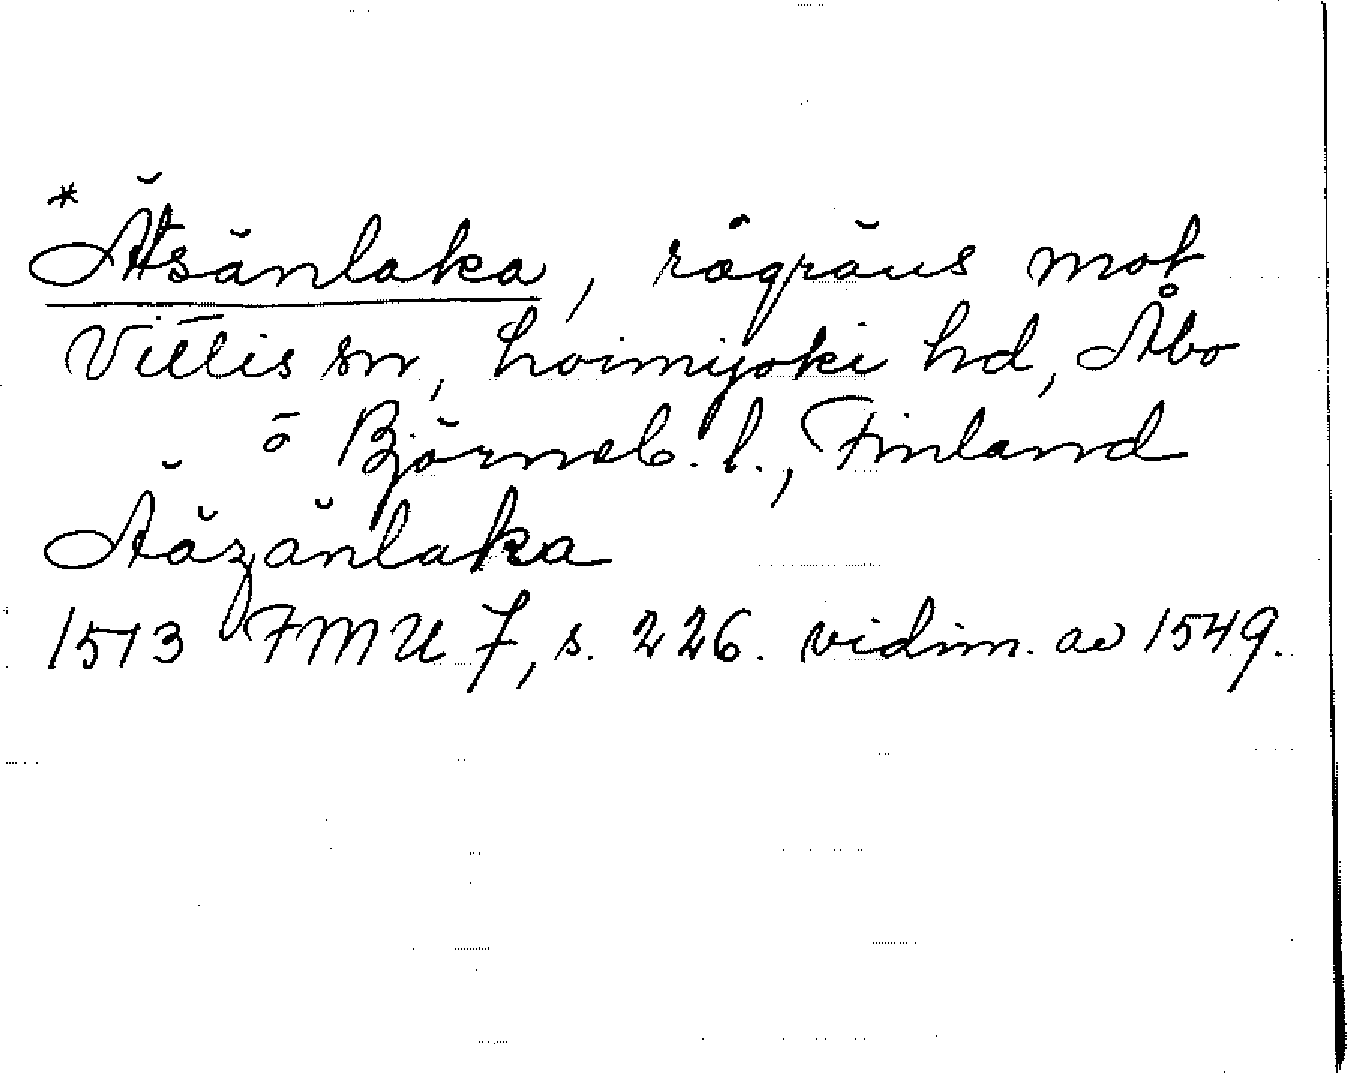 *
Ätsänlaka, rågräns mot
Vittis sn, Loimijoki hd, Åbo
o Björneb. l., Finland
Ääzänlaka
1513 FMU 7, s. 226. vidim. av 1549.